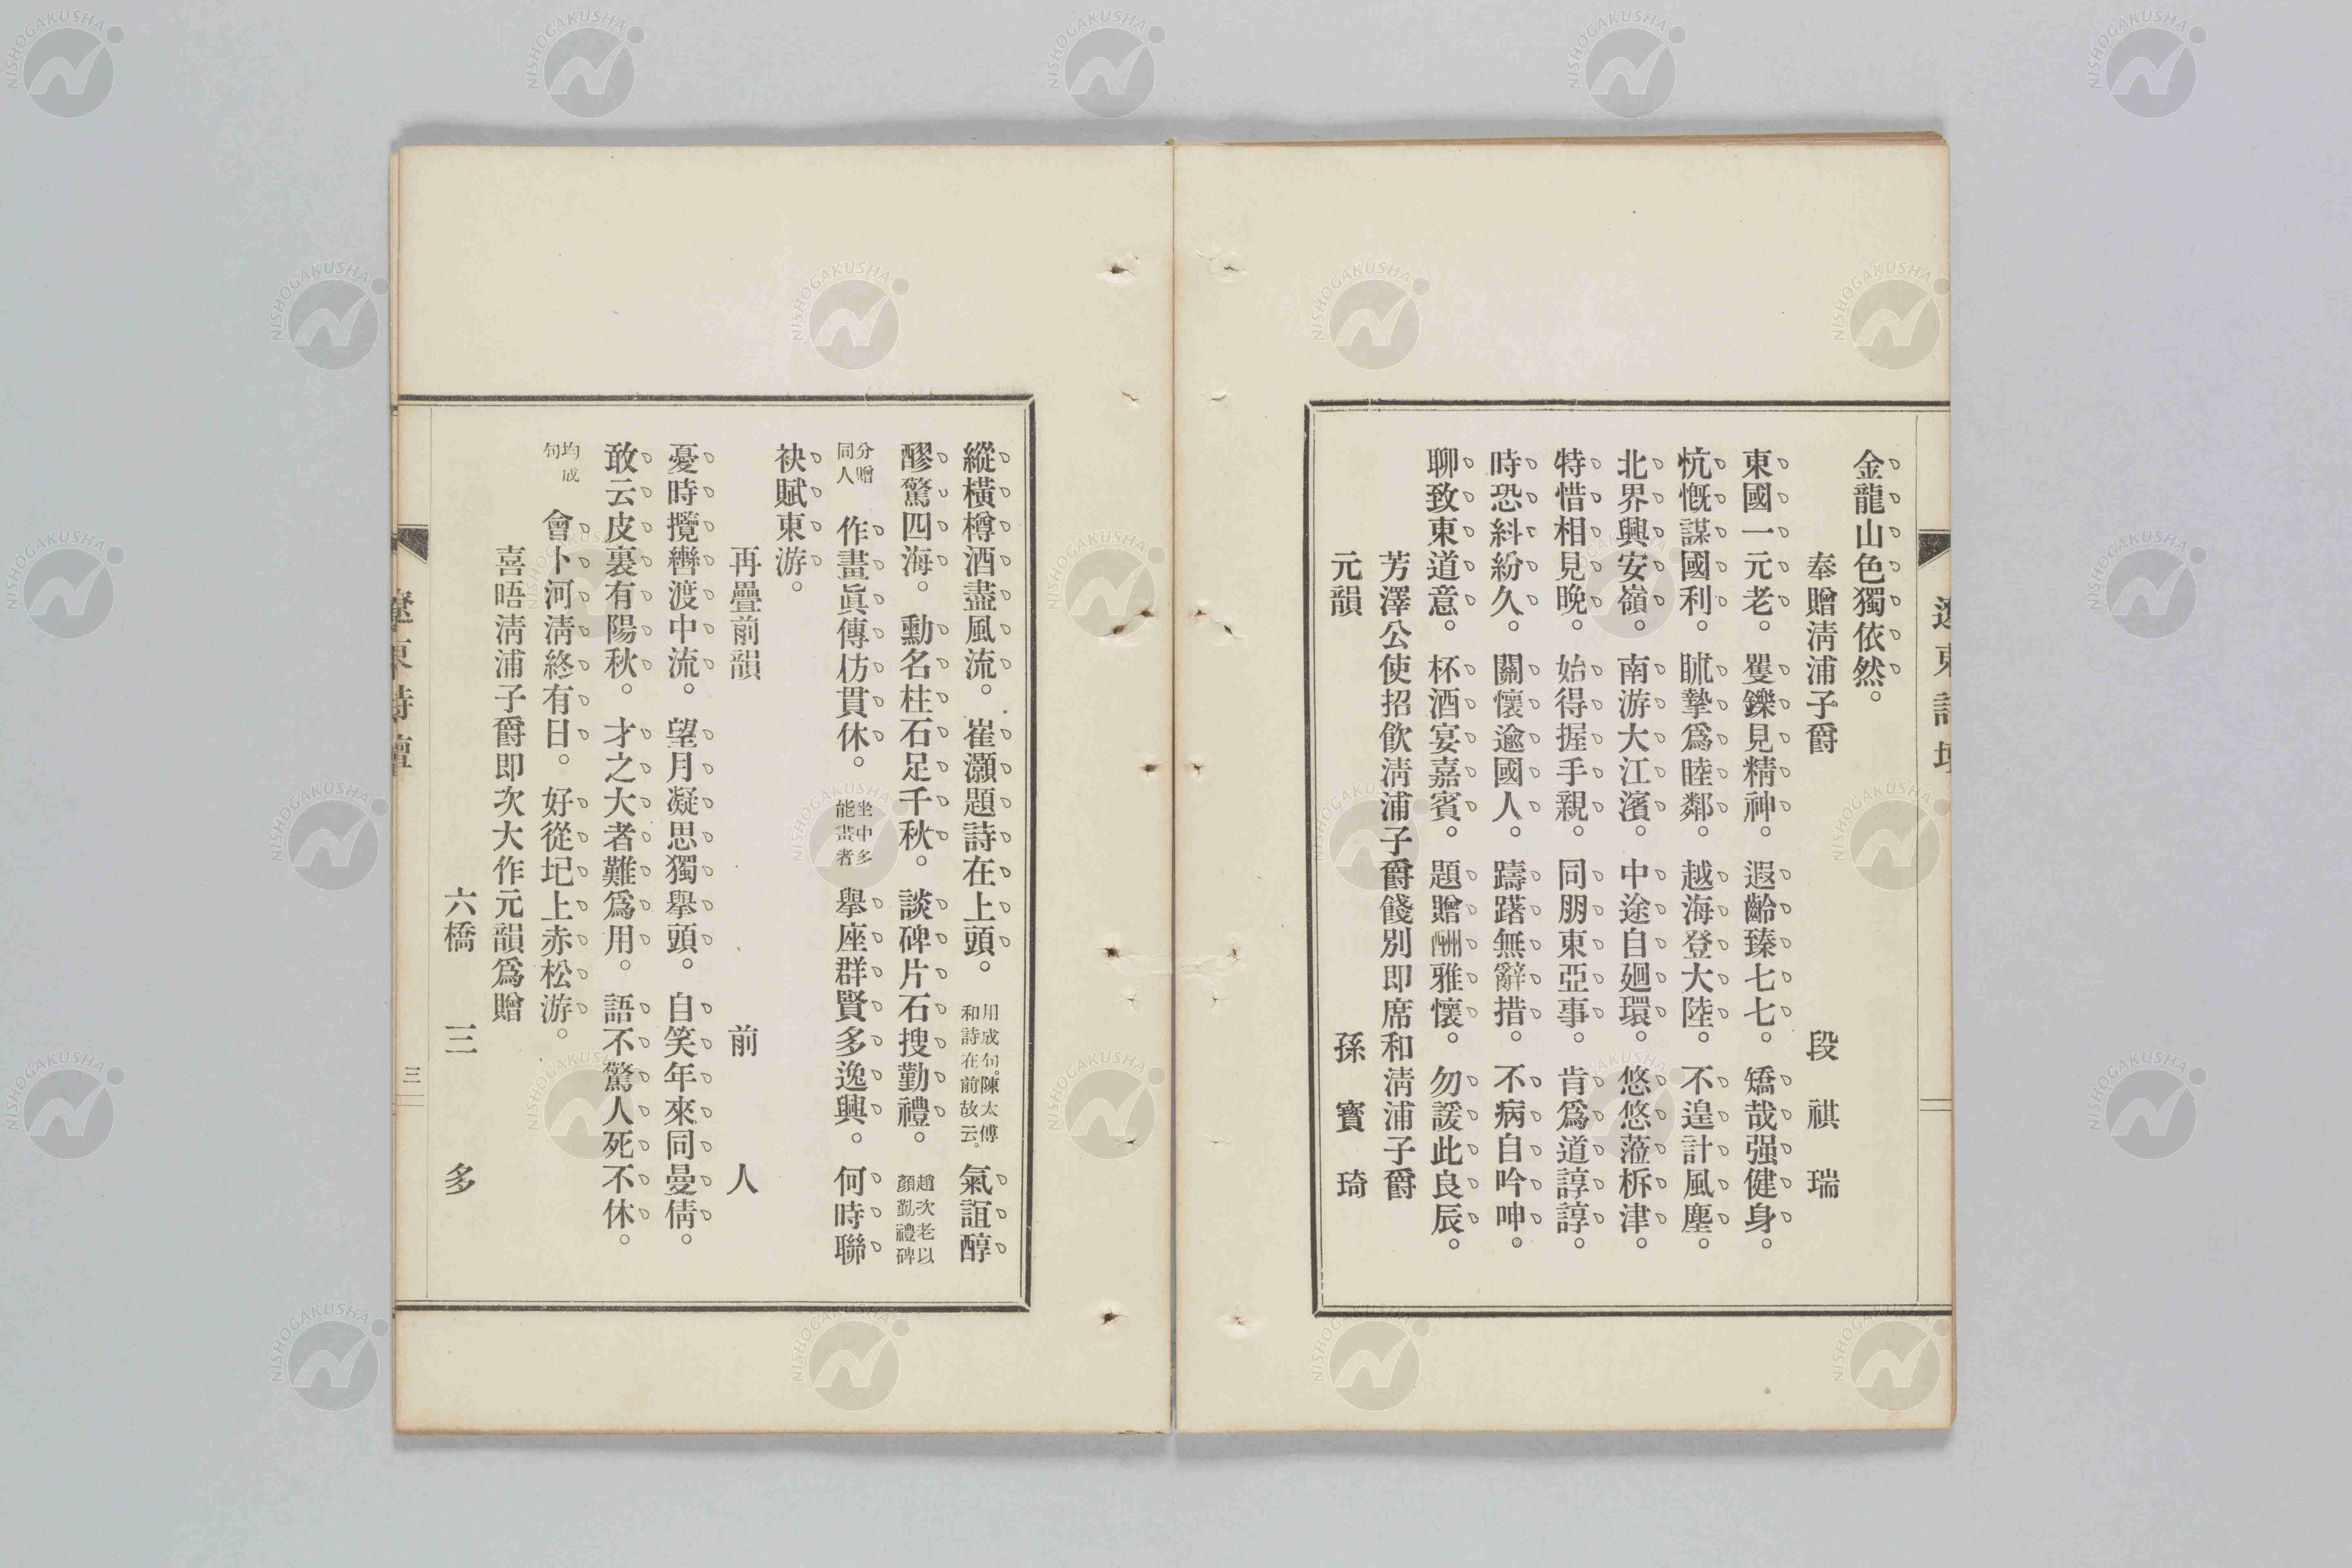 金龍山色獨依然。
奉贈淸浦子爵 段祺瑞
東國一元老。矍鑠見精神。遐齡臻七七。矯哉强健身。
忼慨謀國利。眡摯爲睦鄰。越海登大陸。不遑計風塵。
北界興安嶺。南游大江濱。中途自廻環。悠悠蒞析津。
特惜相見晚。始得握手親。同朋東亞事。肯爲道諄諄。
時恐糾紛久。關懷逾國人。躊躇無辭措。不病自吟呻。
聊致東道意。杯酒宴嘉賓。題贈酬雅懷。勿諼此良辰。
芳澤公使招飮淸浦子爵餞別即席和淸浦子爵
元韻 孫寶琦
縱橫樽酒盡風流。崔灝題詩在上頭。用成句。陳太傅和詩在前故云。氣誼醇
醪驚四海。勳名柱石足千秋。談碑片石搜勤禮。趙次老以顏勤禮碑
分贈同人 作畫眞傳仿貫休。坐中多能畫者 擧座群賢多逸興。何時聯
袂賦東游。
再疊前韻 前人
憂時攬轡渡中流。望月凝思獨擧頭。自笑年來同曼倩。
敢云皮裏有陽秋。才之大者難爲用。語不驚人死不休。
均成句 會卜河淸終有日。好從圯上赤松游。
喜晤淸浦子爵即次大作元韻爲贈
六橋 三多
遼東詩壇
三
NISHOGAKUSHA